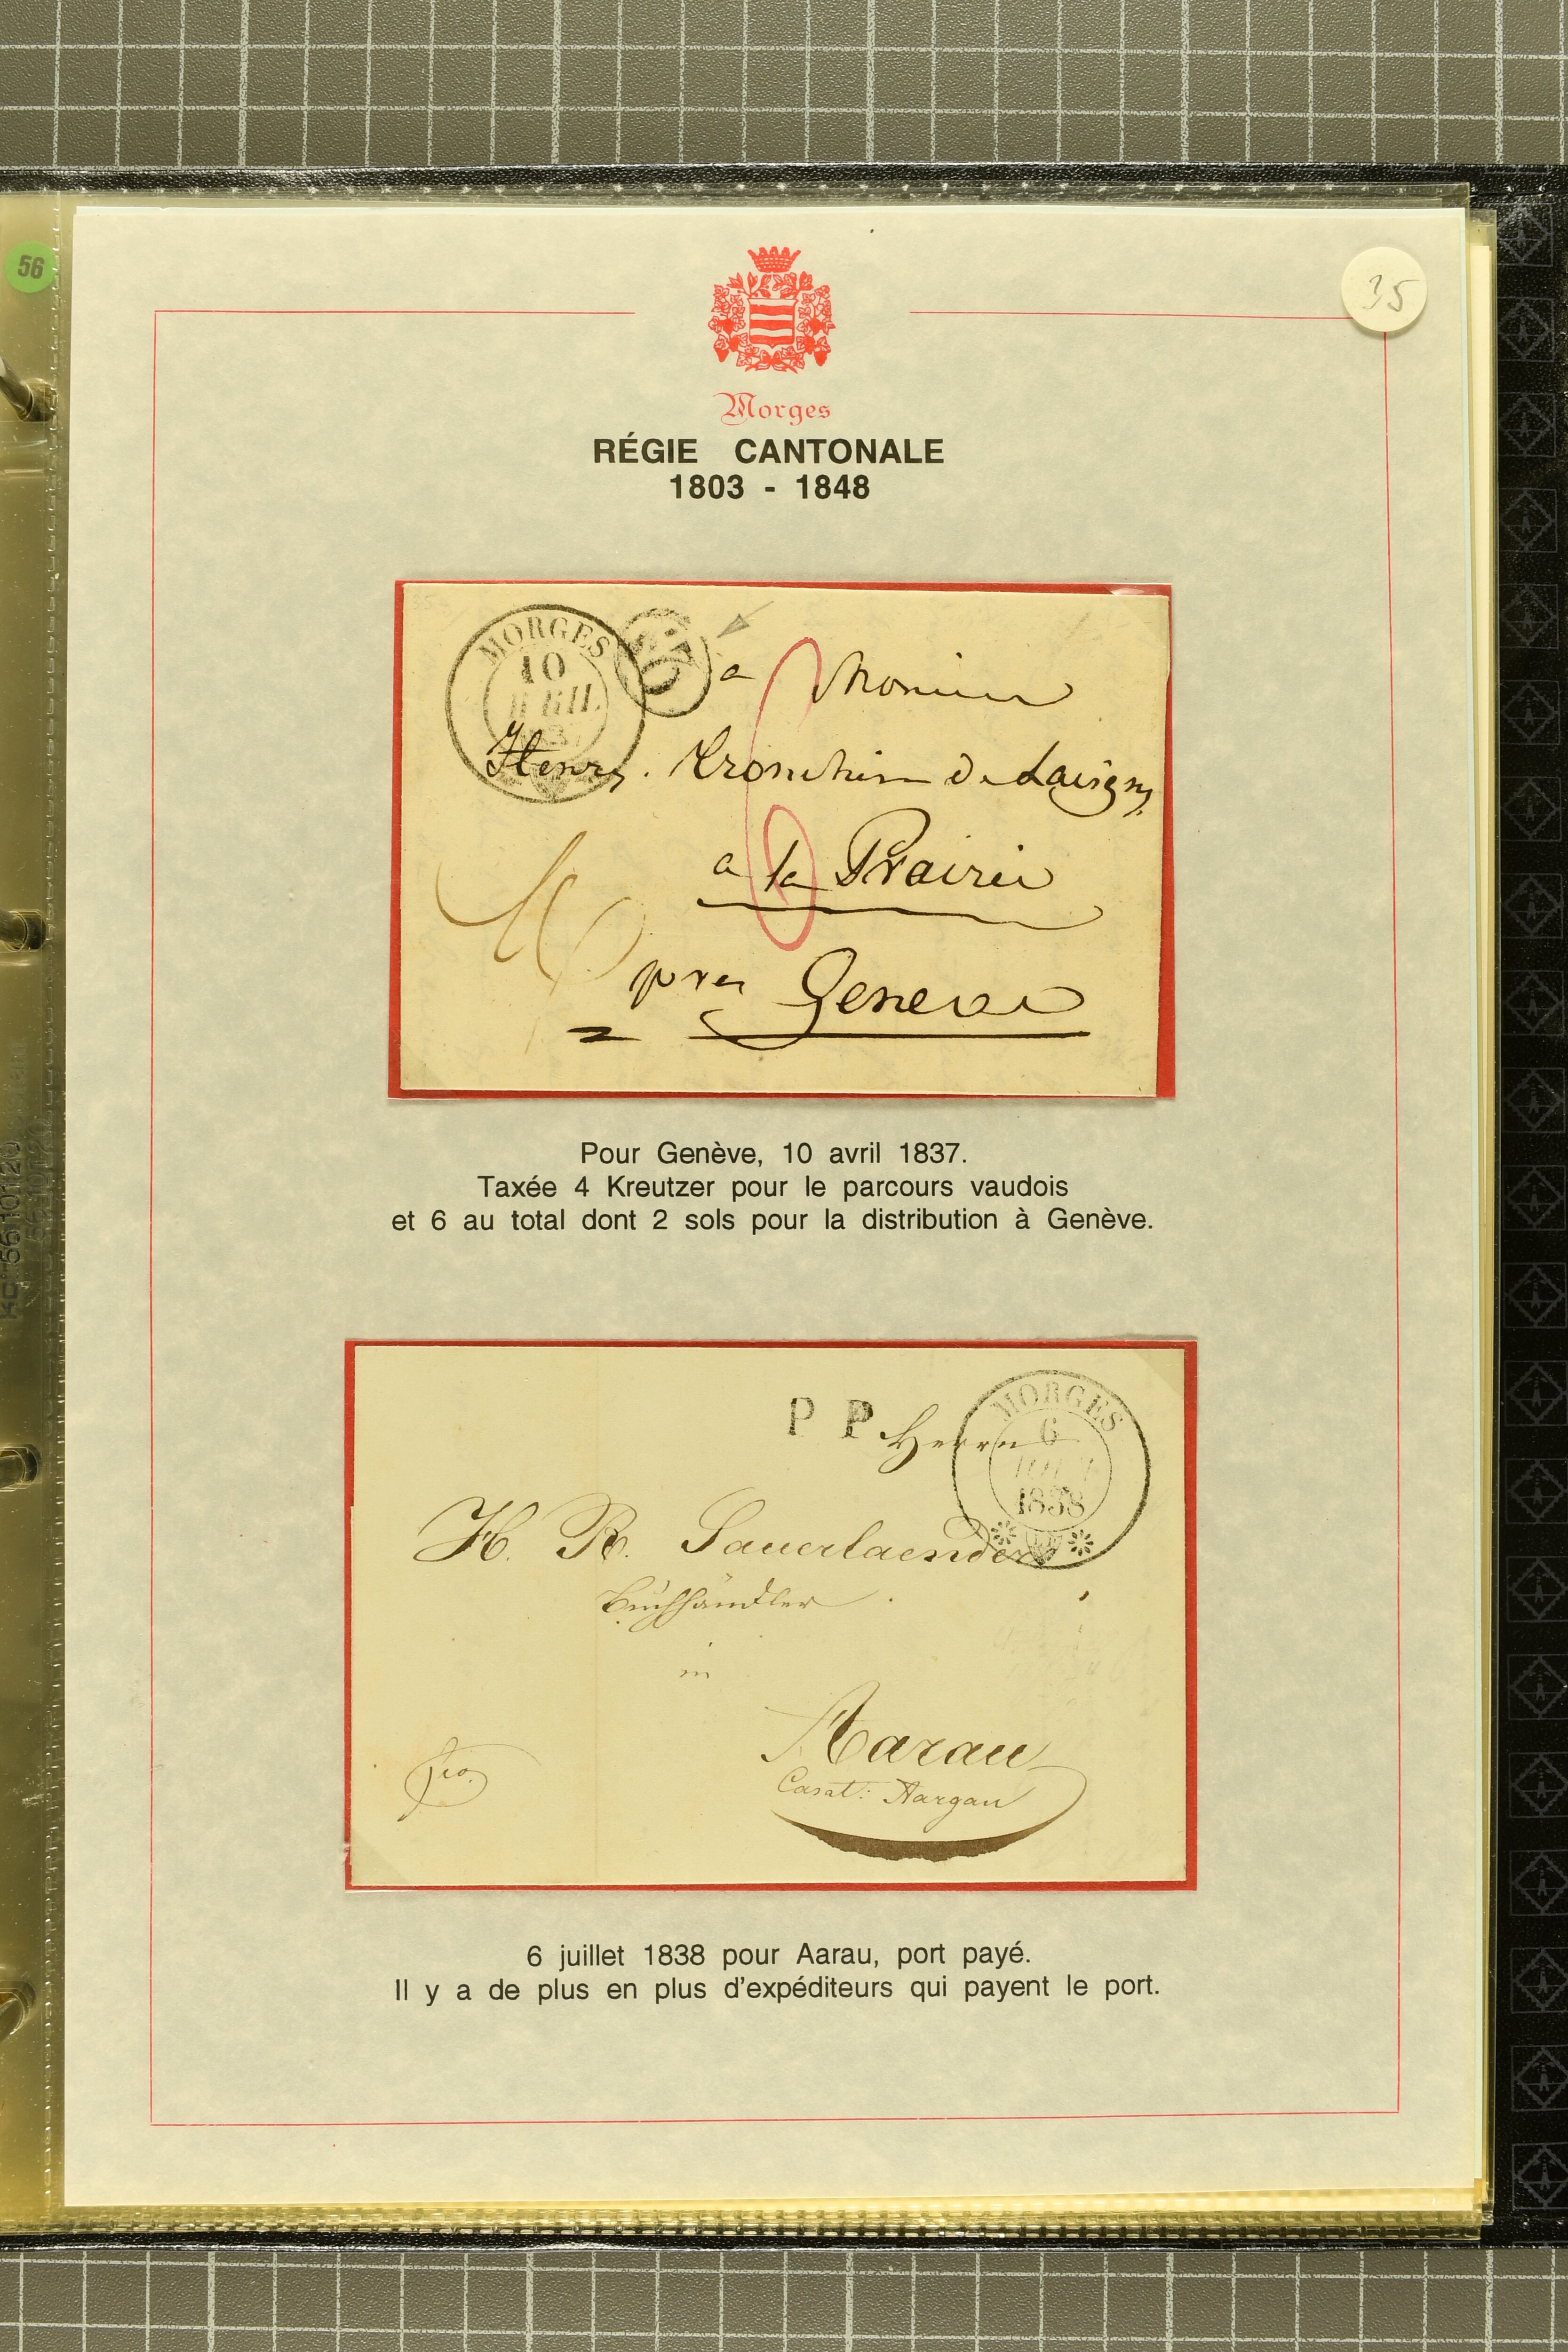 56
35
Morges
RÉGIE CANTONALE
1803 - 1848
MORGES
10
a
Henry
de Lavigny
a la Prairie
pres Geneve
Pour Genève, 10 avril 1837.
Taxée 4 Kreutzer pour le parcours vaudois
et 6 au total dont 2 sols pour la distribution à Genève.
P P
MORGES
6
1838
Herrn
H. R. Sauerlaender
Buchhändler
in
Aarau
Cant: Aargau
fco.
6 juillet 1838 pour Aarau, port payé.
Il y a de plus en plus d'expéditeurs qui payent le port.